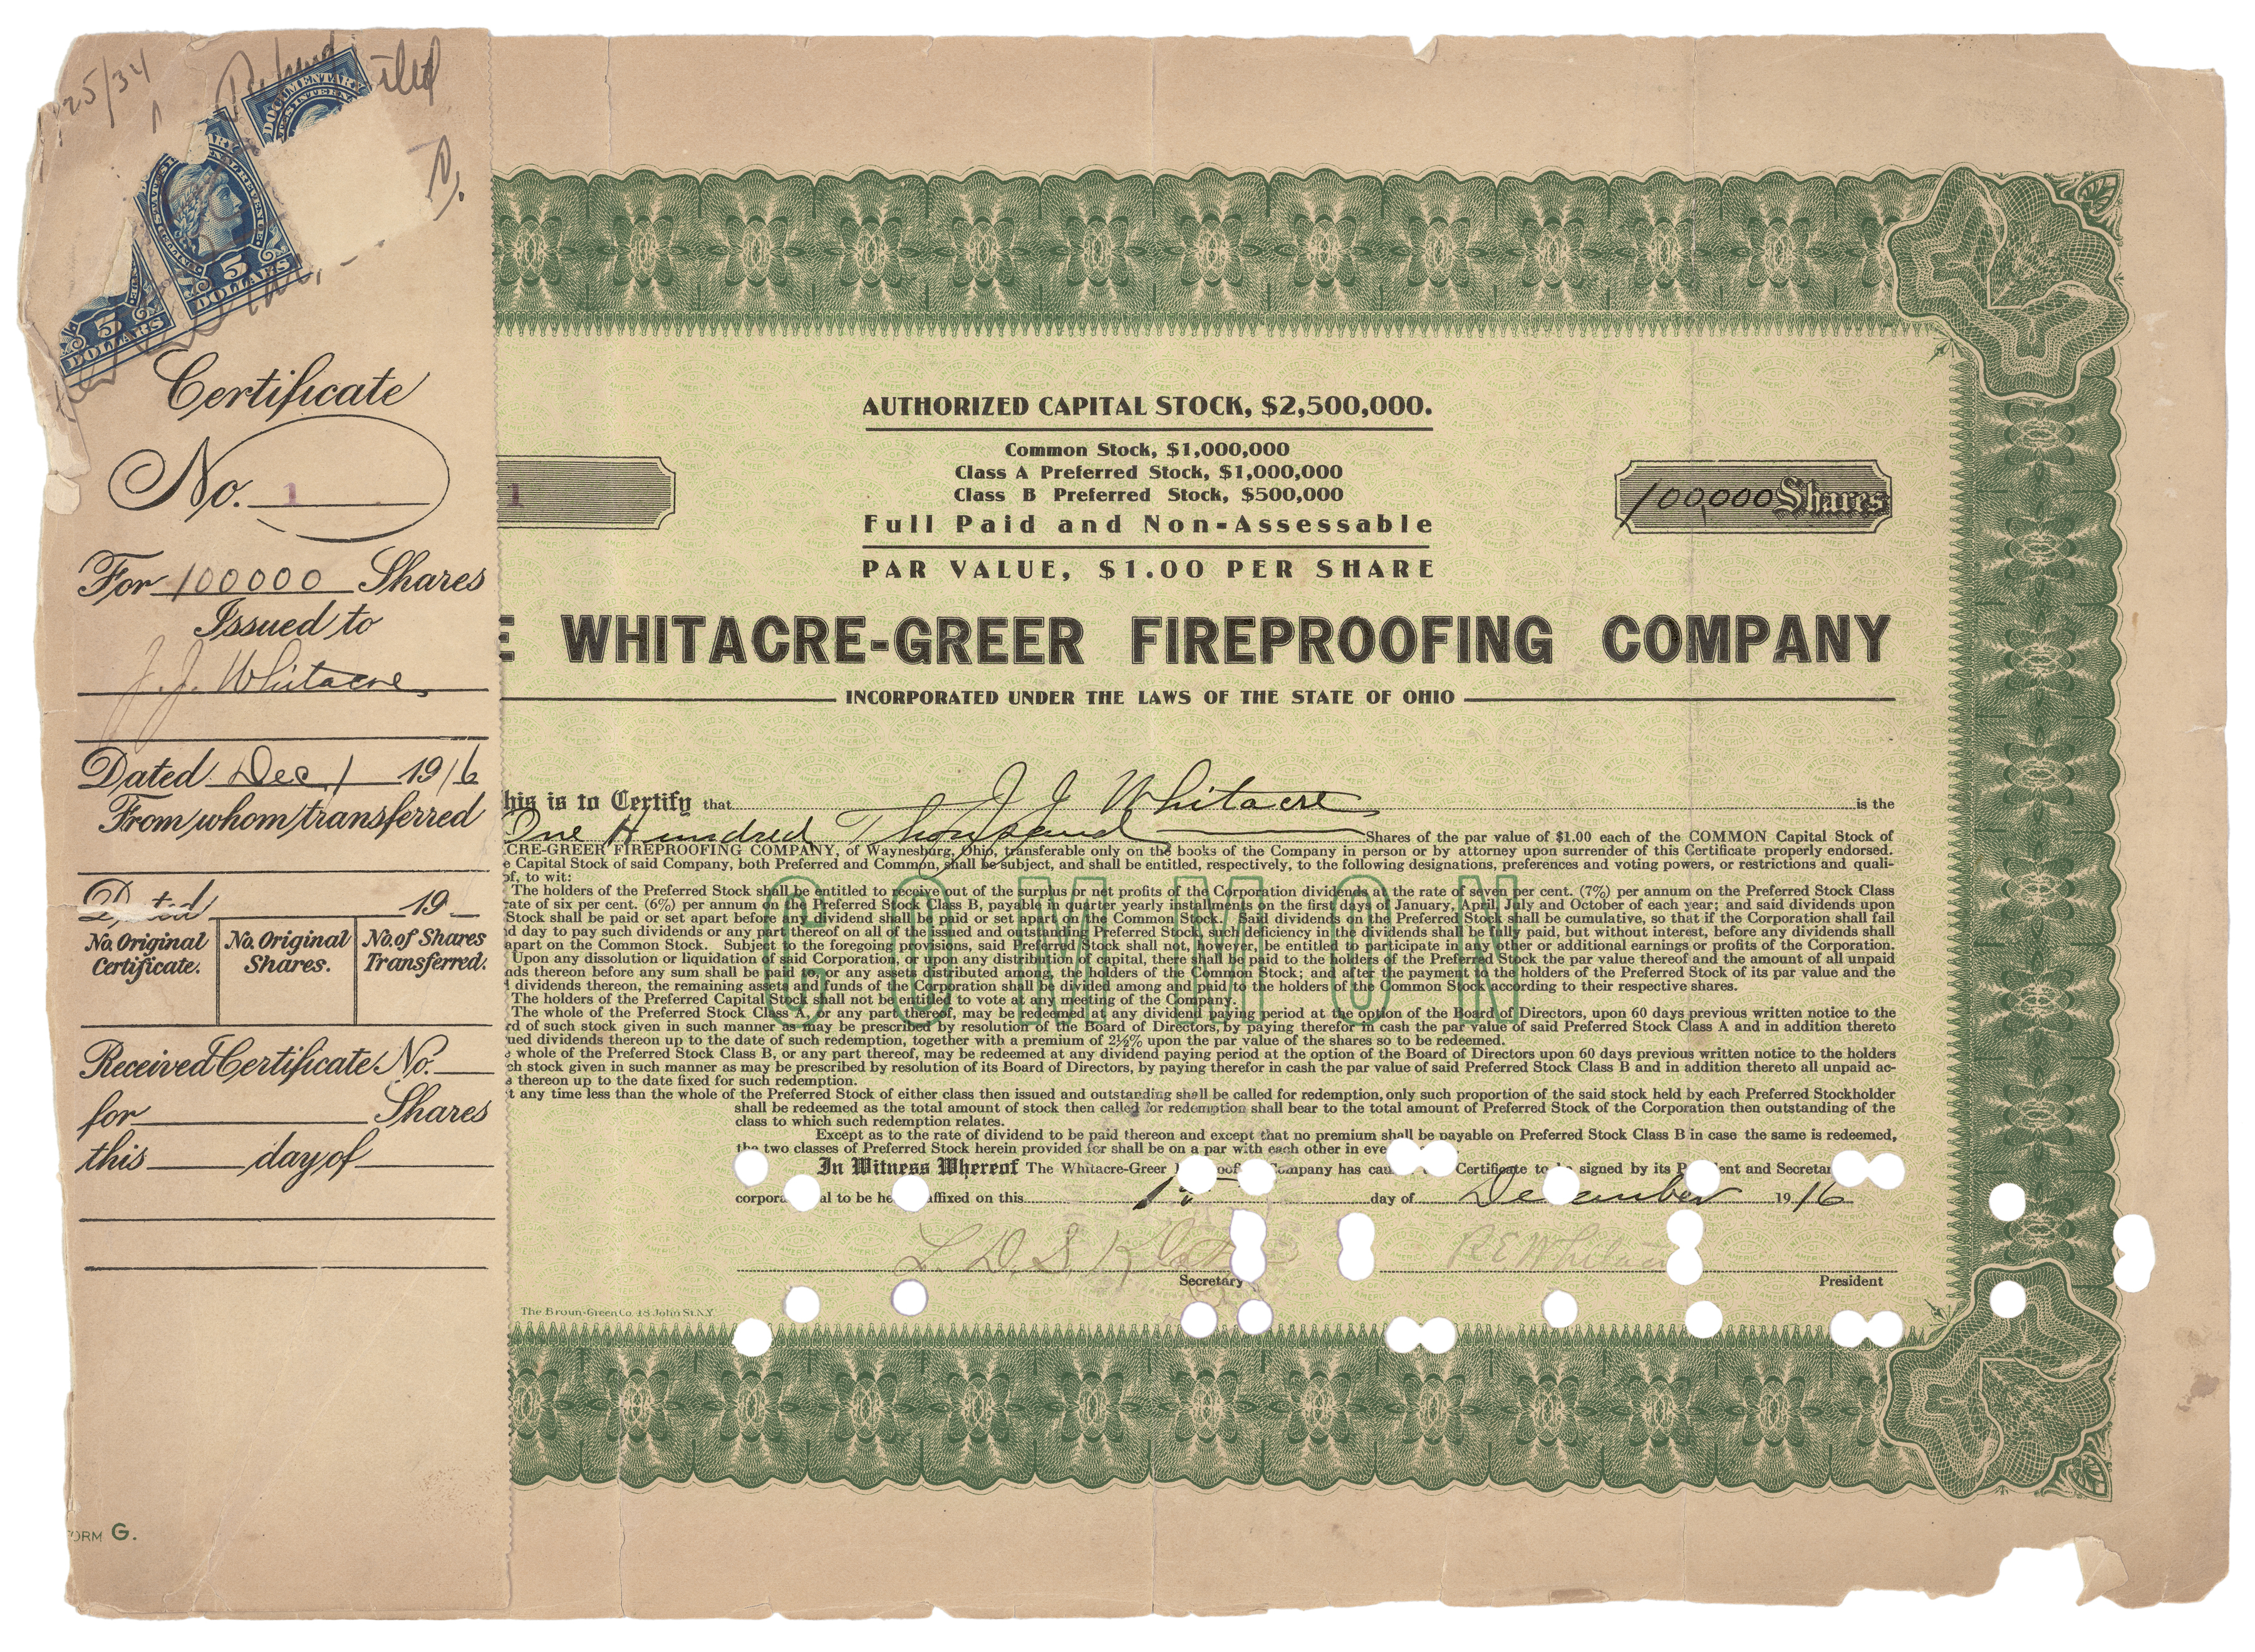 25/34
DOCUMENTARY
5
DOLLARS
5
DOLLARS
Certificate
No. 1
For 100000 Shares
Issued to
J. J. Whitacre
Dated Dec 1 1916
From whom transferred
Dated 19
No. Original Certificate.
No. Original Shares.
No. of Shares Transferred.
Received Certificate No.
for Shares
this day of
ORM G.
AUTHORIZED CAPITAL STOCK, $2,500,000.
Common Stock, $1,000,000
Class A Preferred Stock, $1,000,000
Class B Preferred Stock, $500,000
Full Paid and Non-Assessable
PAR VALUE, $1.00 PER SHARE
1
100,000 Shares
E WHITACRE-GREER FIREPROOFING COMPANY
INCORPORATED UNDER THE LAWS OF THE STATE OF OHIO
his is to Certify that J J Whitacre is the
One Hundred Thousand Shares of the par value of $1.00 each of the COMMON Capital Stock of
CRE-GREER FIREPROOFING COMPANY, of Waynesburg, Ohio, transferable only on the books of the Company in person or by attorney upon surrender of this Certificate properly endorsed.
e Capital Stock of said Company, both Preferred and Common, shall be subject, and shall be entitled, respectively, to the following designations, preferences and voting powers, or restrictions and quali-
of, to wit:
The holders of the Preferred Stock shall be entitled to receive out of the surplus or net profits of the Corporation dividends at the rate of seven per cent. (7%) per annum on the Preferred Stock Class
rate of six per cent. (6%) per annum on the Preferred Stock Class B, payable in quarter yearly installments on the first days of January, April, July and October of each year; and said dividends upon
Stock shall be paid or set apart before any dividend shall be paid or set apart on the Common Stock. Said dividends on the Preferred Stock shall be cumulative, so that if the Corporation shall fail
d day to pay such dividends or any part thereof on all of the issued and outstanding Preferred Stock, such deficiency in the dividends shall be fully paid, but without interest, before any dividends shall
apart on the Common Stock. Subject to the foregoing provisions, said Preferred Stock shall not, however, be entitled to participate in any other or additional earnings or profits of the Corporation.
Upon any dissolution or liquidation of said Corporation, or upon any distribution of capital, there shall be paid to the holders of the Preferred Stock the par value thereof and the amount of all unpaid
nds thereon before any sum shall be paid to, or any assets distributed among, the holders of the Common Stock; and after the payment to the holders of the Preferred Stock of its par value and the
d dividends thereon, the remaining assets and funds of the Corporation shall be divided among and paid to the holders of the Common Stock according to their respective shares.
The holders of the Preferred Capital Stock shall not be entitled to vote at any meeting of the Company.
The whole of the Preferred Stock Class A, or any part thereof, may be redeemed at any dividend paying period at the option of the Board of Directors, upon 60 days previous written notice to the
rd of such stock given in such manner as may be prescribed by resolution of the Board of Directors, by paying therefor in cash the par value of said Preferred Stock Class A and in addition thereto
ued dividends thereon up to the date of such redemption, together with a premium of 2½% upon the par value of the shares so to be redeemed.
e whole of the Preferred Stock Class B, or any part thereof, may be redeemed at any dividend paying period at the option of the Board of Directors upon 60 days previous written notice to the holders
ch stock given in such manner as may be prescribed by resolution of its Board of Directors, by paying therefor in cash the par value of said Preferred Stock Class B and in addition thereto all unpaid ac-
s thereon up to the date fixed for such redemption.
t any time less than the whole of the Preferred Stock of either class then issued and outstanding shall be called for redemption, only such proportion of the said stock held by each Preferred Stockholder
shall be redeemed as the total amount of stock then called for redemption shall bear to the total amount of Preferred Stock of the Corporation then outstanding of the
class to which such redemption relates.
Except as to the rate of dividend to be paid thereon and except that no premium shall be payable on Preferred Stock Class B in case the same is redeemed,
the two classes of Preferred Stock herein provided for shall be on a par with each other in eve
COMMON
In Witness Whereof The Whitacre-Greer oof ompany has cau Certificate to signed by its P ent and Secretar
corpora al to be he affixed on this 1st day of December 1916
L. D. S. R E Whitacre
Secretary President
The Broun-Green Co. 48 John St. N.Y.